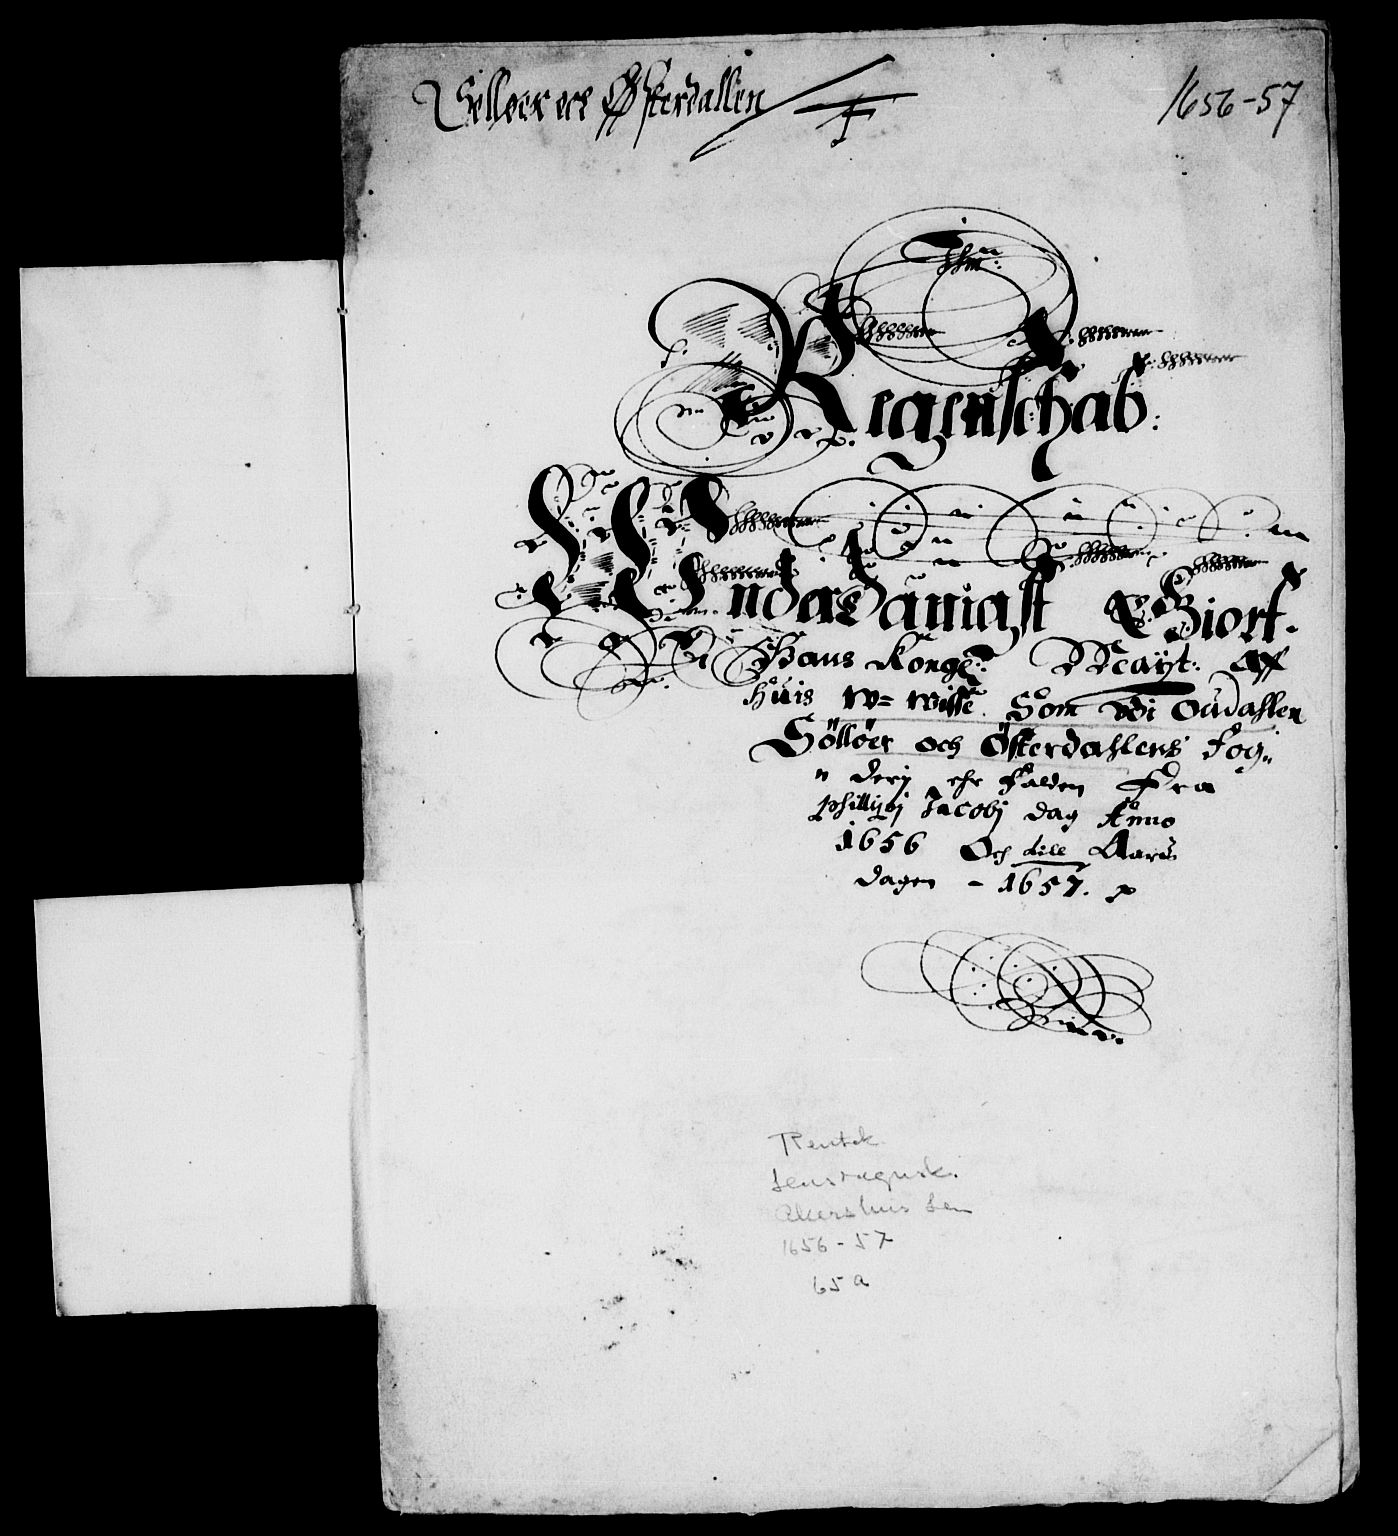 Sølløer och Østerdallen
1656-57
Regenschab:
Underdanigst Giort.
Hans Konge: Mayt: Aff
huis W= wisse Som udi Oudahlen
Söllöer och Österdahlens Fog,,
" derij ehr Falden Fra
philippj Jacobj dag Anno
1656 Och till Aars
dagen - 1657.
Rentek.
Lensregnsk.
Akershus Len
1656-57
65 a